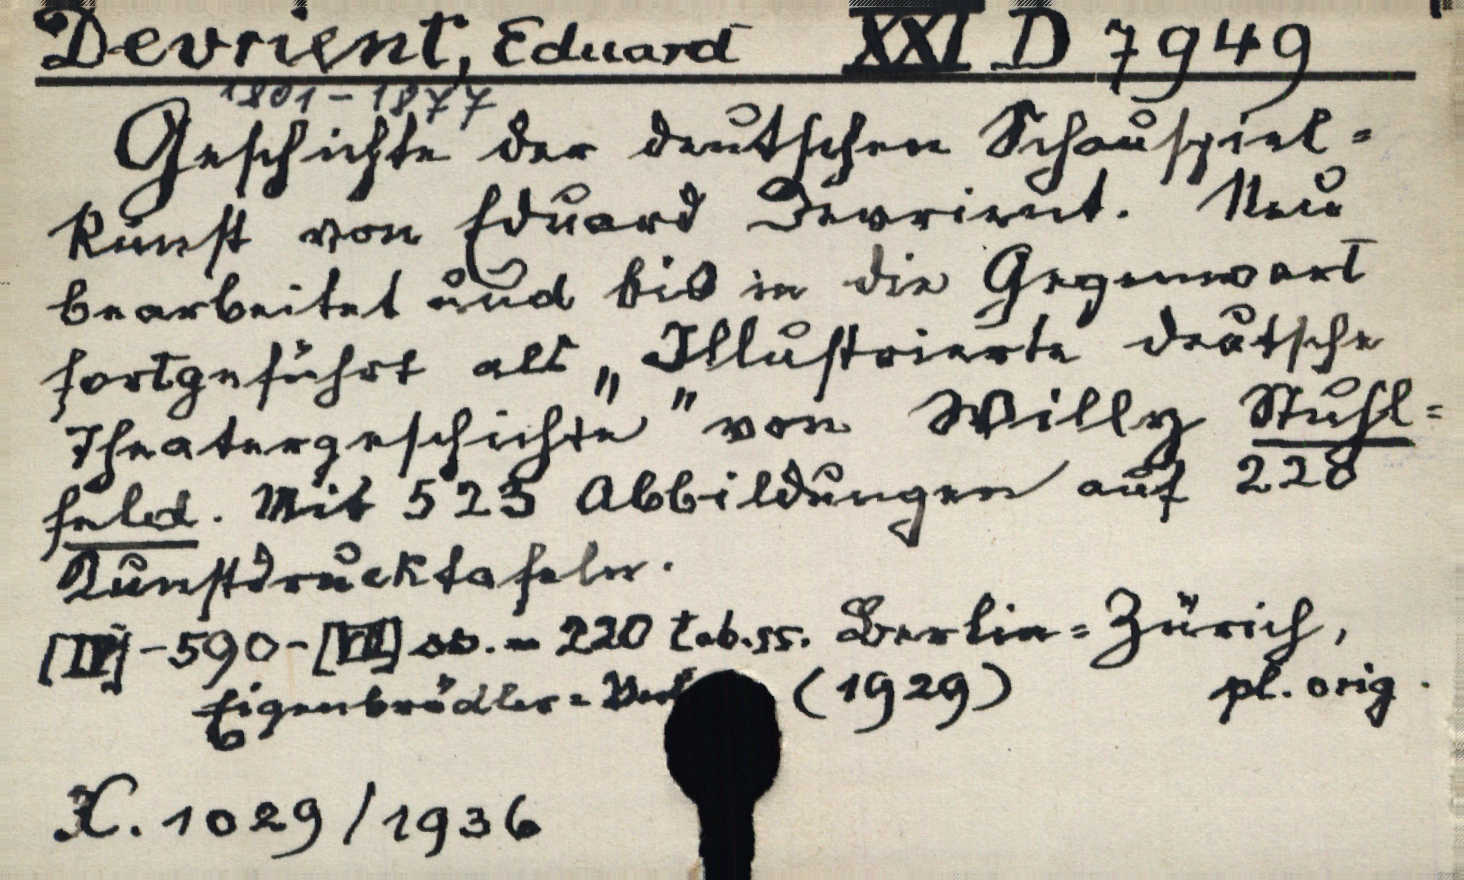 Devrient, Eduard XXI D 7949
1801-1877
Geschichte der deutschen Schauspiel=
kunst von Eduard Devrient. Neu
bearbeitet und bis in die Gegenwart
fortgeführt als „Illustrierte deutsche
Theatergeschichte" von Willy Stuhl=
feld. Mit 523 Abbildungen auf 228
Kunstdrucktafeln.
[IV]-590-[VI] ss. - 220 tab.ss. Berlin=Zürich,
Eigenbrödler= (1929) pl. orig.
X. 1029/1936